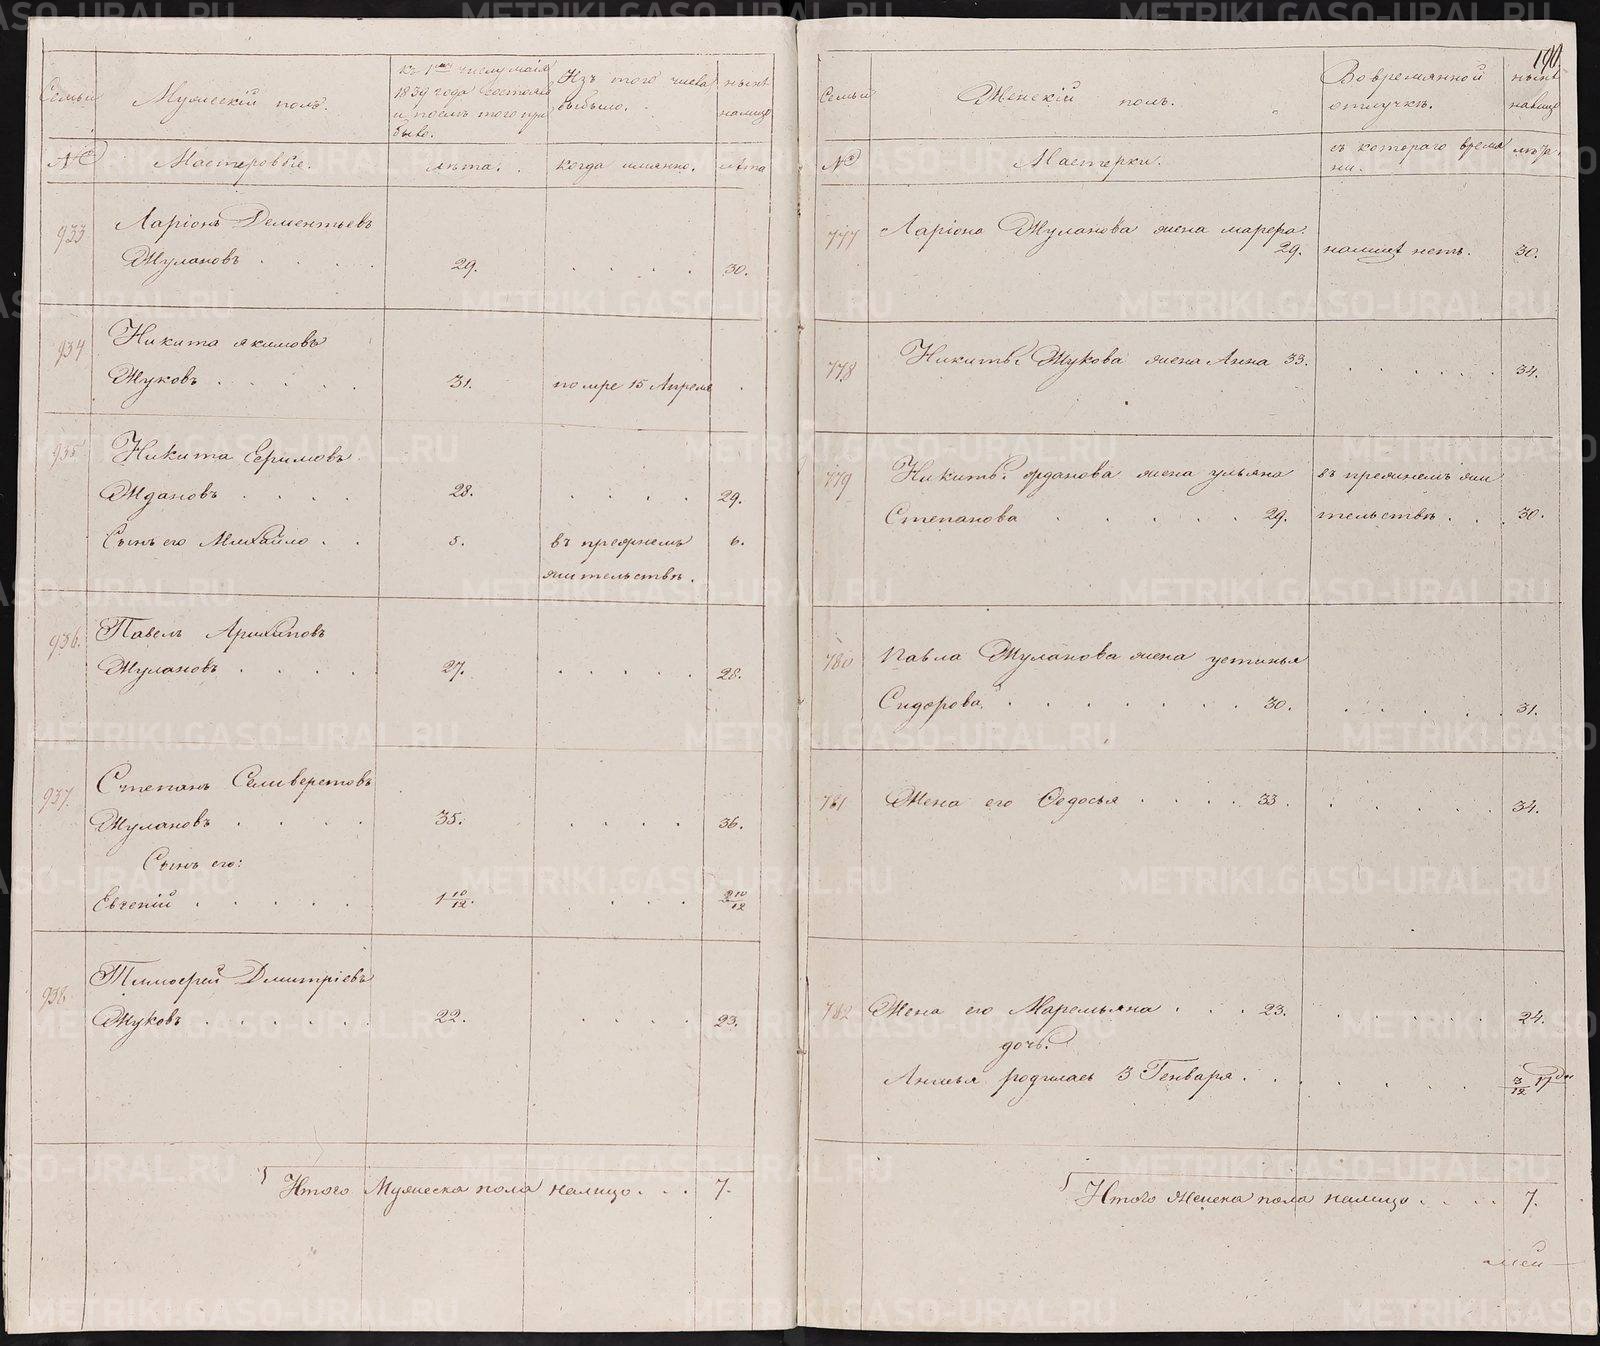 Семьи
Мужескій полъ.
къ 1му числу маія
1839 года состояло
и послѣ того при
было.
Изъ того числа
выбыло.
нынѣ
налицо
№
Мастеровые.
лѣта.
когда имянно.
лѣта
933
Ларіонъ Дементьевъ
Жулановъ . . . . 29. . . . . 30.
934
Никита якимовъ
Жуковъ . . . . . 31. помре 15 Апреля .
935
Никита Ефимовъ
Ждановъ . . . . 28. . . . . 29.
Сынъ его Михайло . . 5. въ прежнемъ 6.
жительствѣ.
936.
Павелъ Архиповъ
Жулановъ . . . . 27. . . . . . 28.
937.
Степанъ Селиверстовъ
Жулановъ . . . . 35. . . . . 36.
Сынъ его:
Евгеній . . . . . 1 10/12. . . . 2 10/12
938.
Тимофей Дмитріевъ
Жуковъ . . . . . . 22. . . . . 23.
Итого Мужеска пола налицо . . . 7.
190.
Семьи
Женскій полъ.
Во времянной
отлучкѣ.
нынѣ
налицо
№
Мастерки.
съ котораго время
ни.
лѣта.
777
Ларіона Жуланова жена марфа.
29. налицѣ нетъ. 30.
778
Никиты Жукова жена Анна 33. . . . . . . 34.
779
Никиты жданова жена ульяна въ прежнемъ жи
Степанова . . . . . 29. тельствѣ . . . 30.
780
Павла Жуланова жена устинья
Сидорова. . . . . . . . 30. . . . . . 31.
781
Жена его Федосья . . . . 33. . . . . . 34.
782
Жена его Маремьяна . . . 23. . . . . . 24.
дочь.
Анисья родилась 3 Генваря . . . . . . . 3/12 17 дн
Итого женска пола налицо . . . . 7.